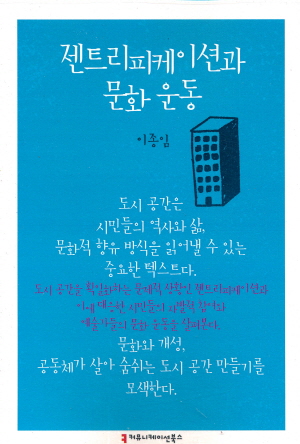 젠트리피케이션과
문화 운동
이종임
도시 공간은
시민들의 역사와 삶,
문화적 향유 방식을 읽어낼 수 있는
중요한 텍스트다.
도시 공간을 획일화하는 문제적 상황인 젠트리피케이션과
이에 맞선 시민들의 자발적 참여와
예술가들의 문화 운동을 살펴본다.
문화와 개성,
공동체가 살아 숨쉬는 도시 공간 만들기를
모색한다.
커뮤니케이션북스